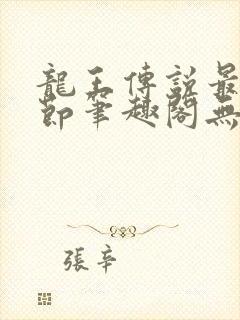 龍王傳説最
節筆趣閣無
張辛